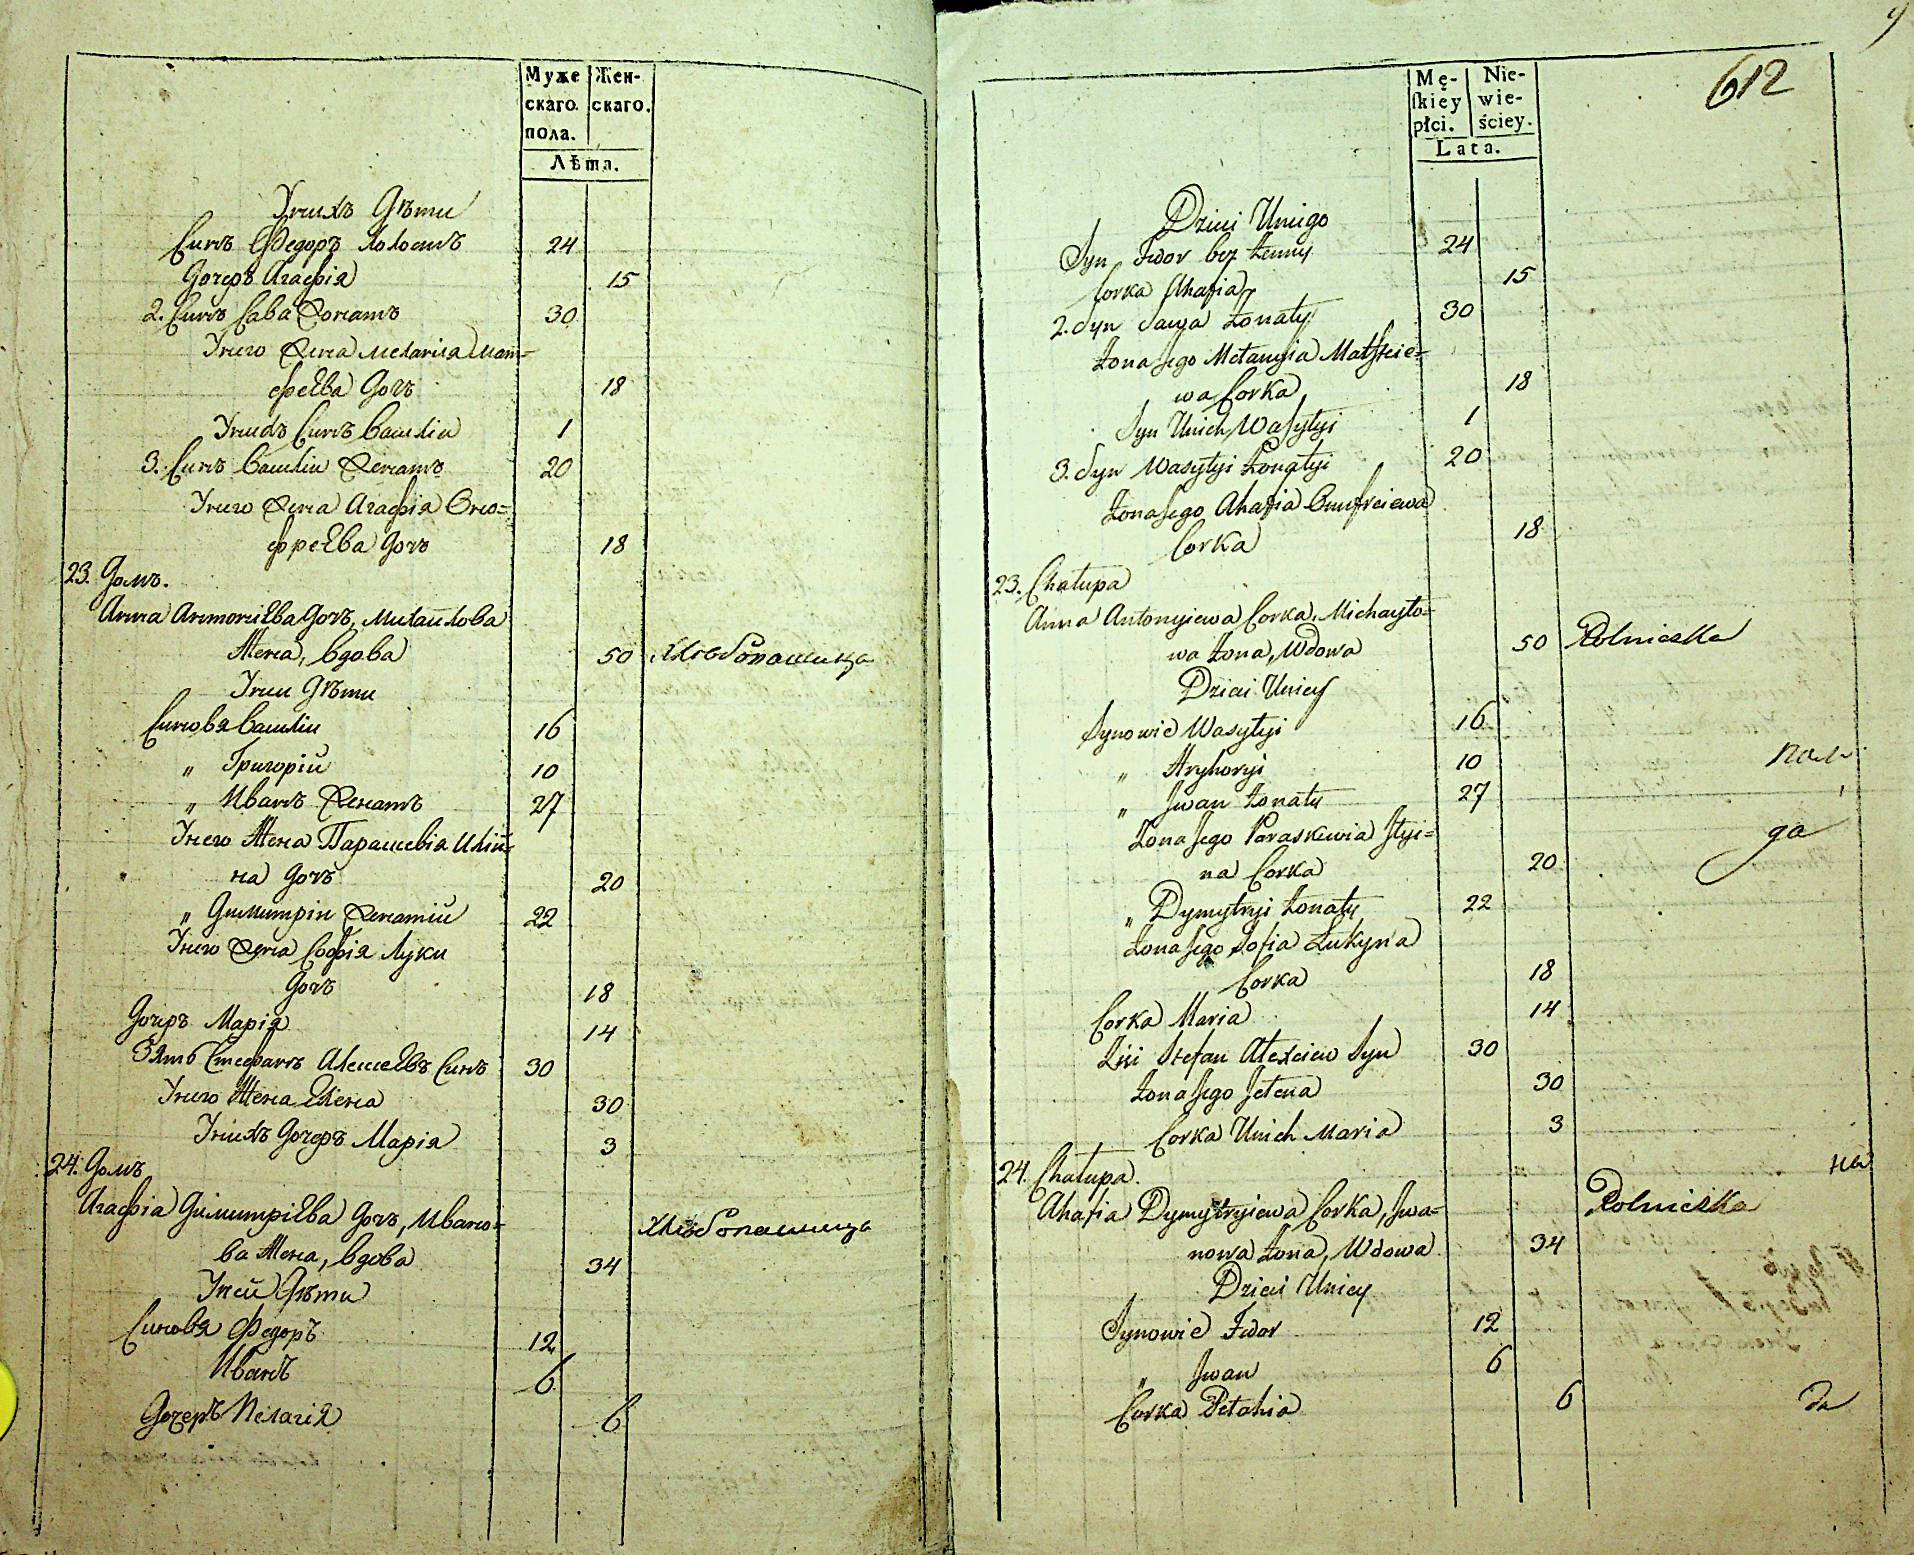 Муже Жен-
скаго. скаго.
пола.
Лѣта.
У нихъ Дѣти
Синъ Федоръ Холостъ 24
Дочеръ Агафія 15
2. Синъ Сава Женатъ 30
У него Жена Меланія Мат-
феева Дочь 18
У нихъ Синъ Василій 1
3. Синъ Василій Женатъ 20
У него Жена Агафія Ону-
фреева Дочь 18
23. Домъ.
Анна Антоніева Дочь, Михайлова
Жена, Вдова 50 Хлѣбопашица
У ней Дѣти
Синовя Василій 16
„ Григорій 10
„ Иванъ Женатъ 27
У него Жена Параскевія Иліи-
на Дочь 20
„ Димитрій Женатій 22
У него Жена Софія Луки
Дочь 18
Дочеръ Марія 14
Зять Стефанъ Алексѣевъ Синъ 30
У него Жена Елена 30
У нихъ Дочеръ Марія 3
24. Домъ
Агафія Димитріева Дочь, Ивано-
ва Жена, Вдова 34 Хлѣбопашица
У ней Дѣти
Синовя Федоръ 12
Иванъ 6
Дочеръ Пелагія 6
612
Mę- Nie-
skiey wie-
płci. ściey.
Lata.
Dzieci U niego
Syn Fedor bez Żenny 24
Corka Ahafia 15
2. Syn Sawa Żonaty 30
Żona Jego Mełanyia Matfeie-
wa Corka 18
Syn U nich Wasylyi 1
3. Syn Wasylyi Żonatyi 20
Żona Jego Ahafia Onufreiewa
Corka 18
23. Chałupa
Anna Antonyiewa Corka, Michayło-
wa Żona, Wdowa 50 Rolniczka
Dzieci U niey
Synowie Wasylyi 16
„ Hryhoryi 10
„ Jwan Żonaty 27
Żona Jego Paraskewia Jlyi-
na Corka 20
„ Dymytryi Żonaty 22
Żona Jego Sofia Łukyna
Corka 18
Corka Maria 14
Zięć Stefan Alexiew Syn 30
Żona Jego Jelena 30
Corka U nich Maria 3
24. Chałupa.
Ahafia Dymytryiewa Corka, Jwa-
nowa Żona, Wdowa 34 Rolniczka
Dzieci U niey
Synowie Fedor 12
„ Jwan 6
Corka Pelahia 6